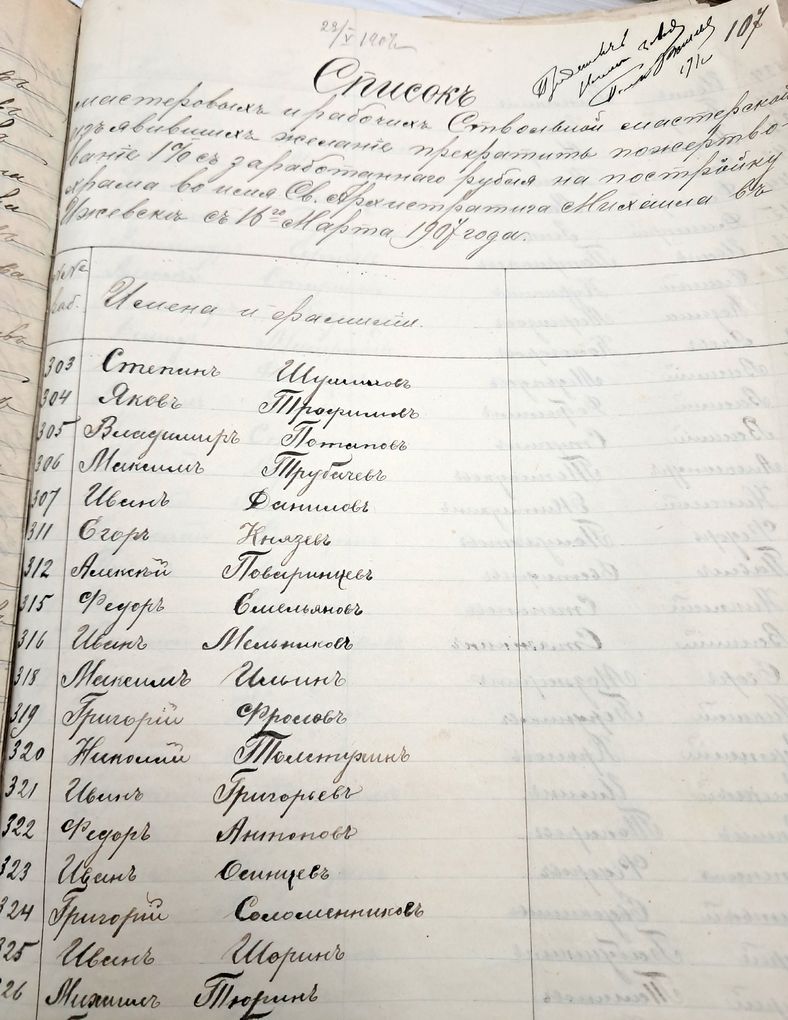 28/V 1907
107
1912
Списокъ
мастеровыхъ и рабочихъ Ствольной мастерской
изъявившихъ желанiе прекратить пожертво-
ванiе 1% съ заработаннаго рубля на постройку
храма во имя Св. Архистратига Михаила въ
Ижевскѣ съ 16го Марта 1907 года.
№№ раб. Имена и фамилiи.
303 Степанъ Шумиловъ
304 Яковъ Трофимовъ
305 Владимиръ Потаповъ
306 Максимъ Трубачевъ
307 Иванъ Даниловъ
311 Егоръ Князевъ
312 Алексѣй Поваринцевъ
315 Федоръ Емельяновъ
316 Иванъ Мельниковъ
318 Максимъ Ильинъ
319 Григорiй Фроловъ
320 Николай Толстухинъ
321 Иванъ Григорьевъ
322 Федоръ Антоновъ
323 Иванъ Осинцевъ
324 Григорiй Соломенниковъ
325 Иванъ Шоринъ
326 Михаилъ Тюринъ